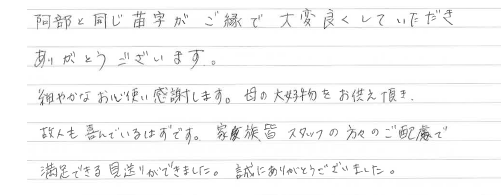 阿部と同じ苗字がご縁で大変良くしていただき
ありがとうございます。
細やかなお心使い感謝します。母の大好物をお供え頂き、
故人も喜んでいるはずです。家族皆スタッフの方々のご配慮で
満足できる見送りができました。誠にありがとうございました。